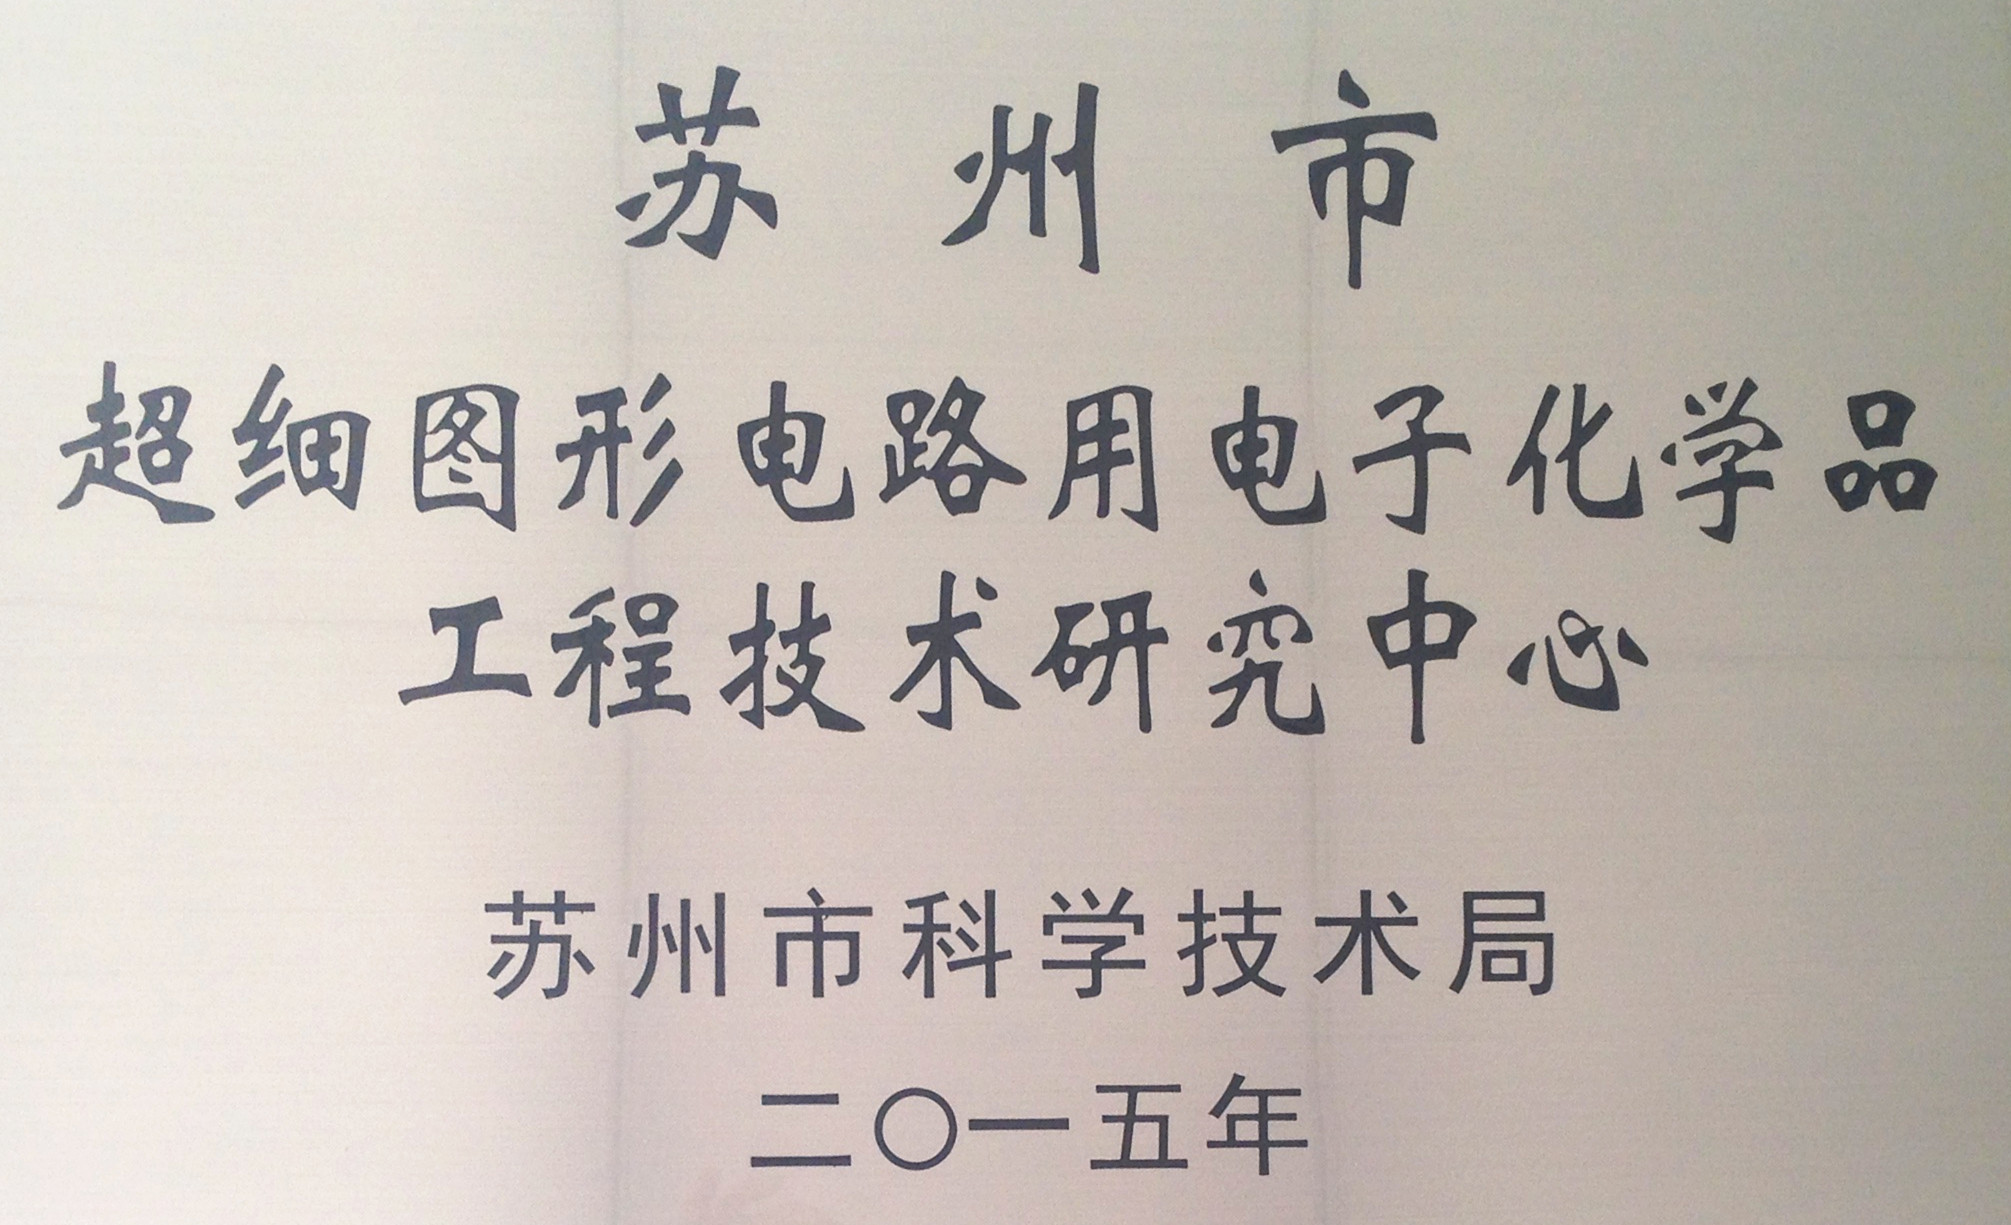 苏州市
超细图形电路用电子化学品
工程技术研究中心
苏州市科学技术局
二〇一五年